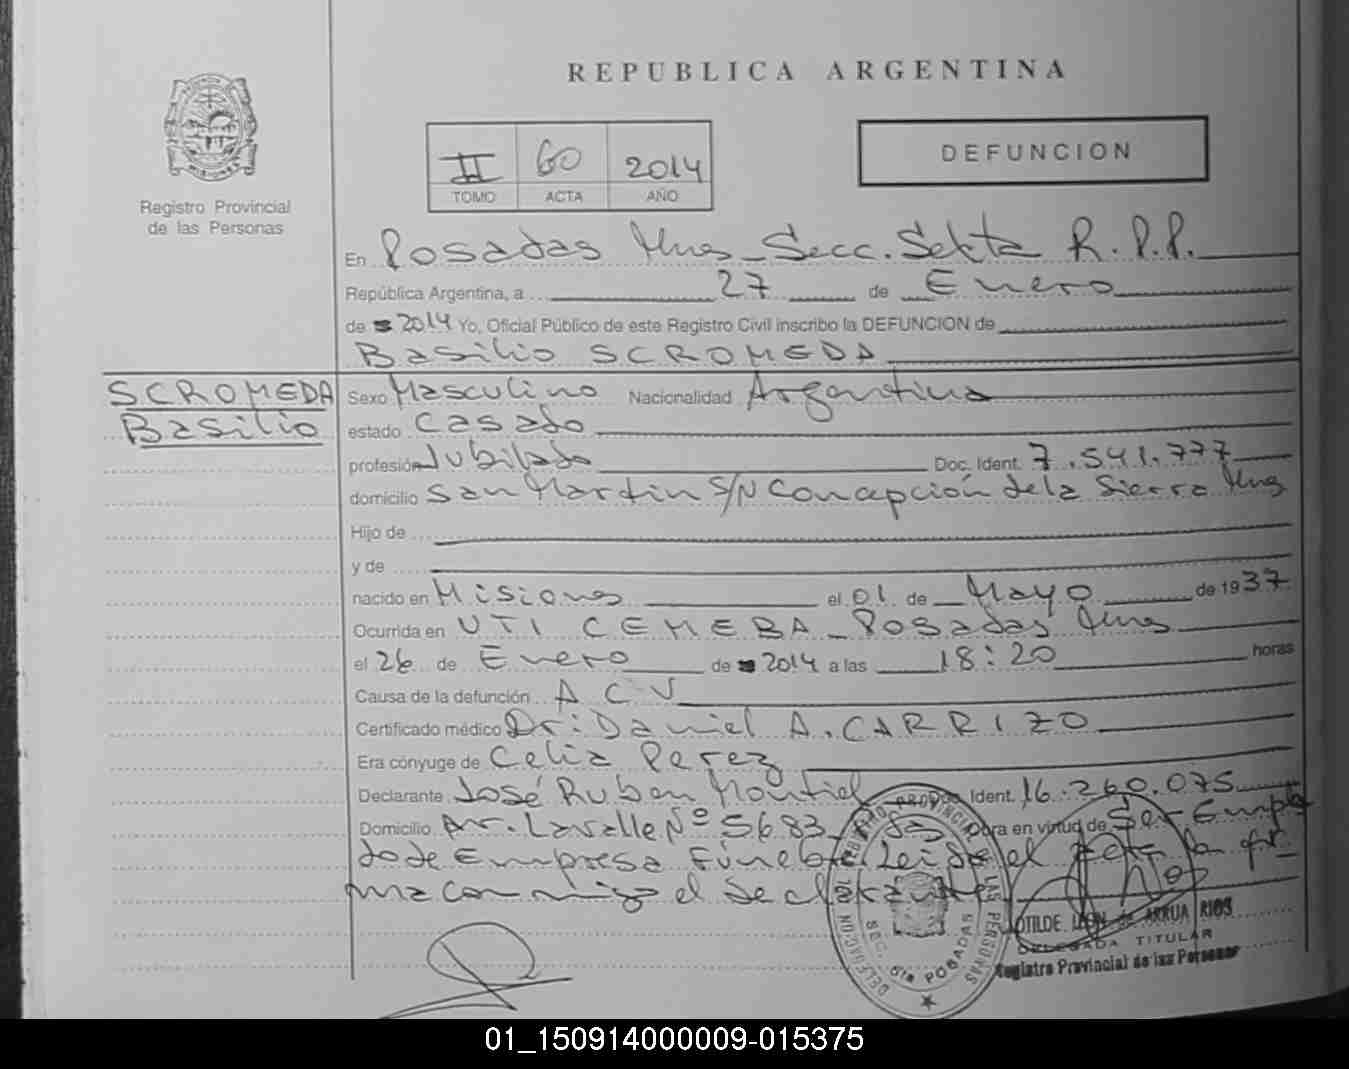 REPUBLICA ARGENTINA
II 60 2014
TOMO ACTA AÑO
DEFUNCION
MISIONES
Registro Provincial
de las Personas
En Posadas Mnes - Secc. Sexta R.P.P.
República Argentina, a 27 de Enero
de 2014 Yo, Oficial Público de este Registro Civil inscribo la DEFUNCION de
Basilio SCROMEDA
SCROMEDA
Basilio
Sexo Masculino Nacionalidad Argentina
estado Casado
profesión Jubilado Doc. Ident. 7.541.777
domicilio San Martin S/N Concepción de la Sierra Mnes
Hijo de
y de
nacido en Misiones el 01 de Mayo de 1937
Ocurrida en UTI CEMEBA - Posadas Mnes
el 26 de Enero de 2014 a las 18:20 horas
Causa de la defunción A C V
Certificado médico Dr: Daniel A. CARRIZO
Era cónyuge de Celia Perez
Declarante José Ruben Montiel Doc. Ident. 16.260.075
Domicilio Av. Lavalle Nº 5683 Obra en virtud de Ser Emplea
do de Empresa Fúnebre Leida el acta la fir
ma conmigo el declarante
REGISTRO PROVINCIAL DE LAS PERSONAS
SEC. 6ta POSADAS
ARRUA RIOS
DELEGADA TITULAR
Registro Provincial de las Personas
01_150914000009-015375